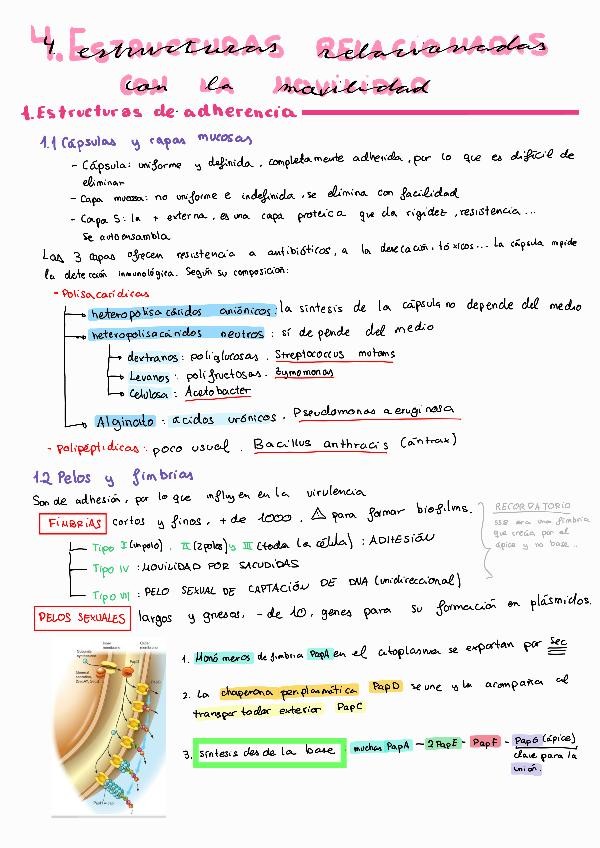 4. Estructuras relacionadas
con la movilidad
1. Estructuras de adherencia
1.1 Cápsulas y capas mucosas
- Cápsula: uniforme y definida, completamente adherida, por lo que es difícil de
eliminar
- Capa mucosa: no uniforme e indefinida, se elimina con facilidad
- Capa S: la + externa, es una capa proteica que da rigidez, resistencia...
Se autoensambla
Las 3 capas ofrecen resistencia a antibióticos, a la desecación, tóxicos... La cápsula impide
la detección inmunológica. Según su composición:
- Polisacarídicas
heteropolisacáridos aniónicos: la síntesis de la cápsula no depende del medio
heteropolisacáridos neutros: sí depende del medio
dextranos: poliglucosas. Streptococcus mutans
Levanos: polifructosas. Zymomonas
Celulosa: Acetobacter
Alginato: ácidos urónicos. Pseudomonas aeruginosa
- Polipéptidicas: poco usual. Bacillus anthracis (ántrax)
1.2 Pelos y fimbrias
Son de adhesión, por lo que influyen en la virulencia
FIMBRIAS cortos y finos, + de 1000, para formar biofilms.
RECORDATORIO
SS3 era una fimbria
que crecía por el
ápice y no base..
Tipo I (unpolo), II (2polos) y III (toda la célula): ADHESIÓN
Tipo IV: MOVILIDAD POR SACUDIDAS
Tipo VII: PELO SEXUAL DE CAPTACIÓN DE DNA (unidireccional)
PELOS SEXUALES largos y gruesos, - de 10, genes para su formación en plásmidos.
1. Monómeros de fimbria PapA en el citoplasma se exportan por Sec
2. La chaperona periplasmática PapD se une y la acompaña al
transportador exterior PapC
3. síntesis desde la base. muchas PapA - 2 PapE - PapF - PapG (ápice)
clave para la
unión.